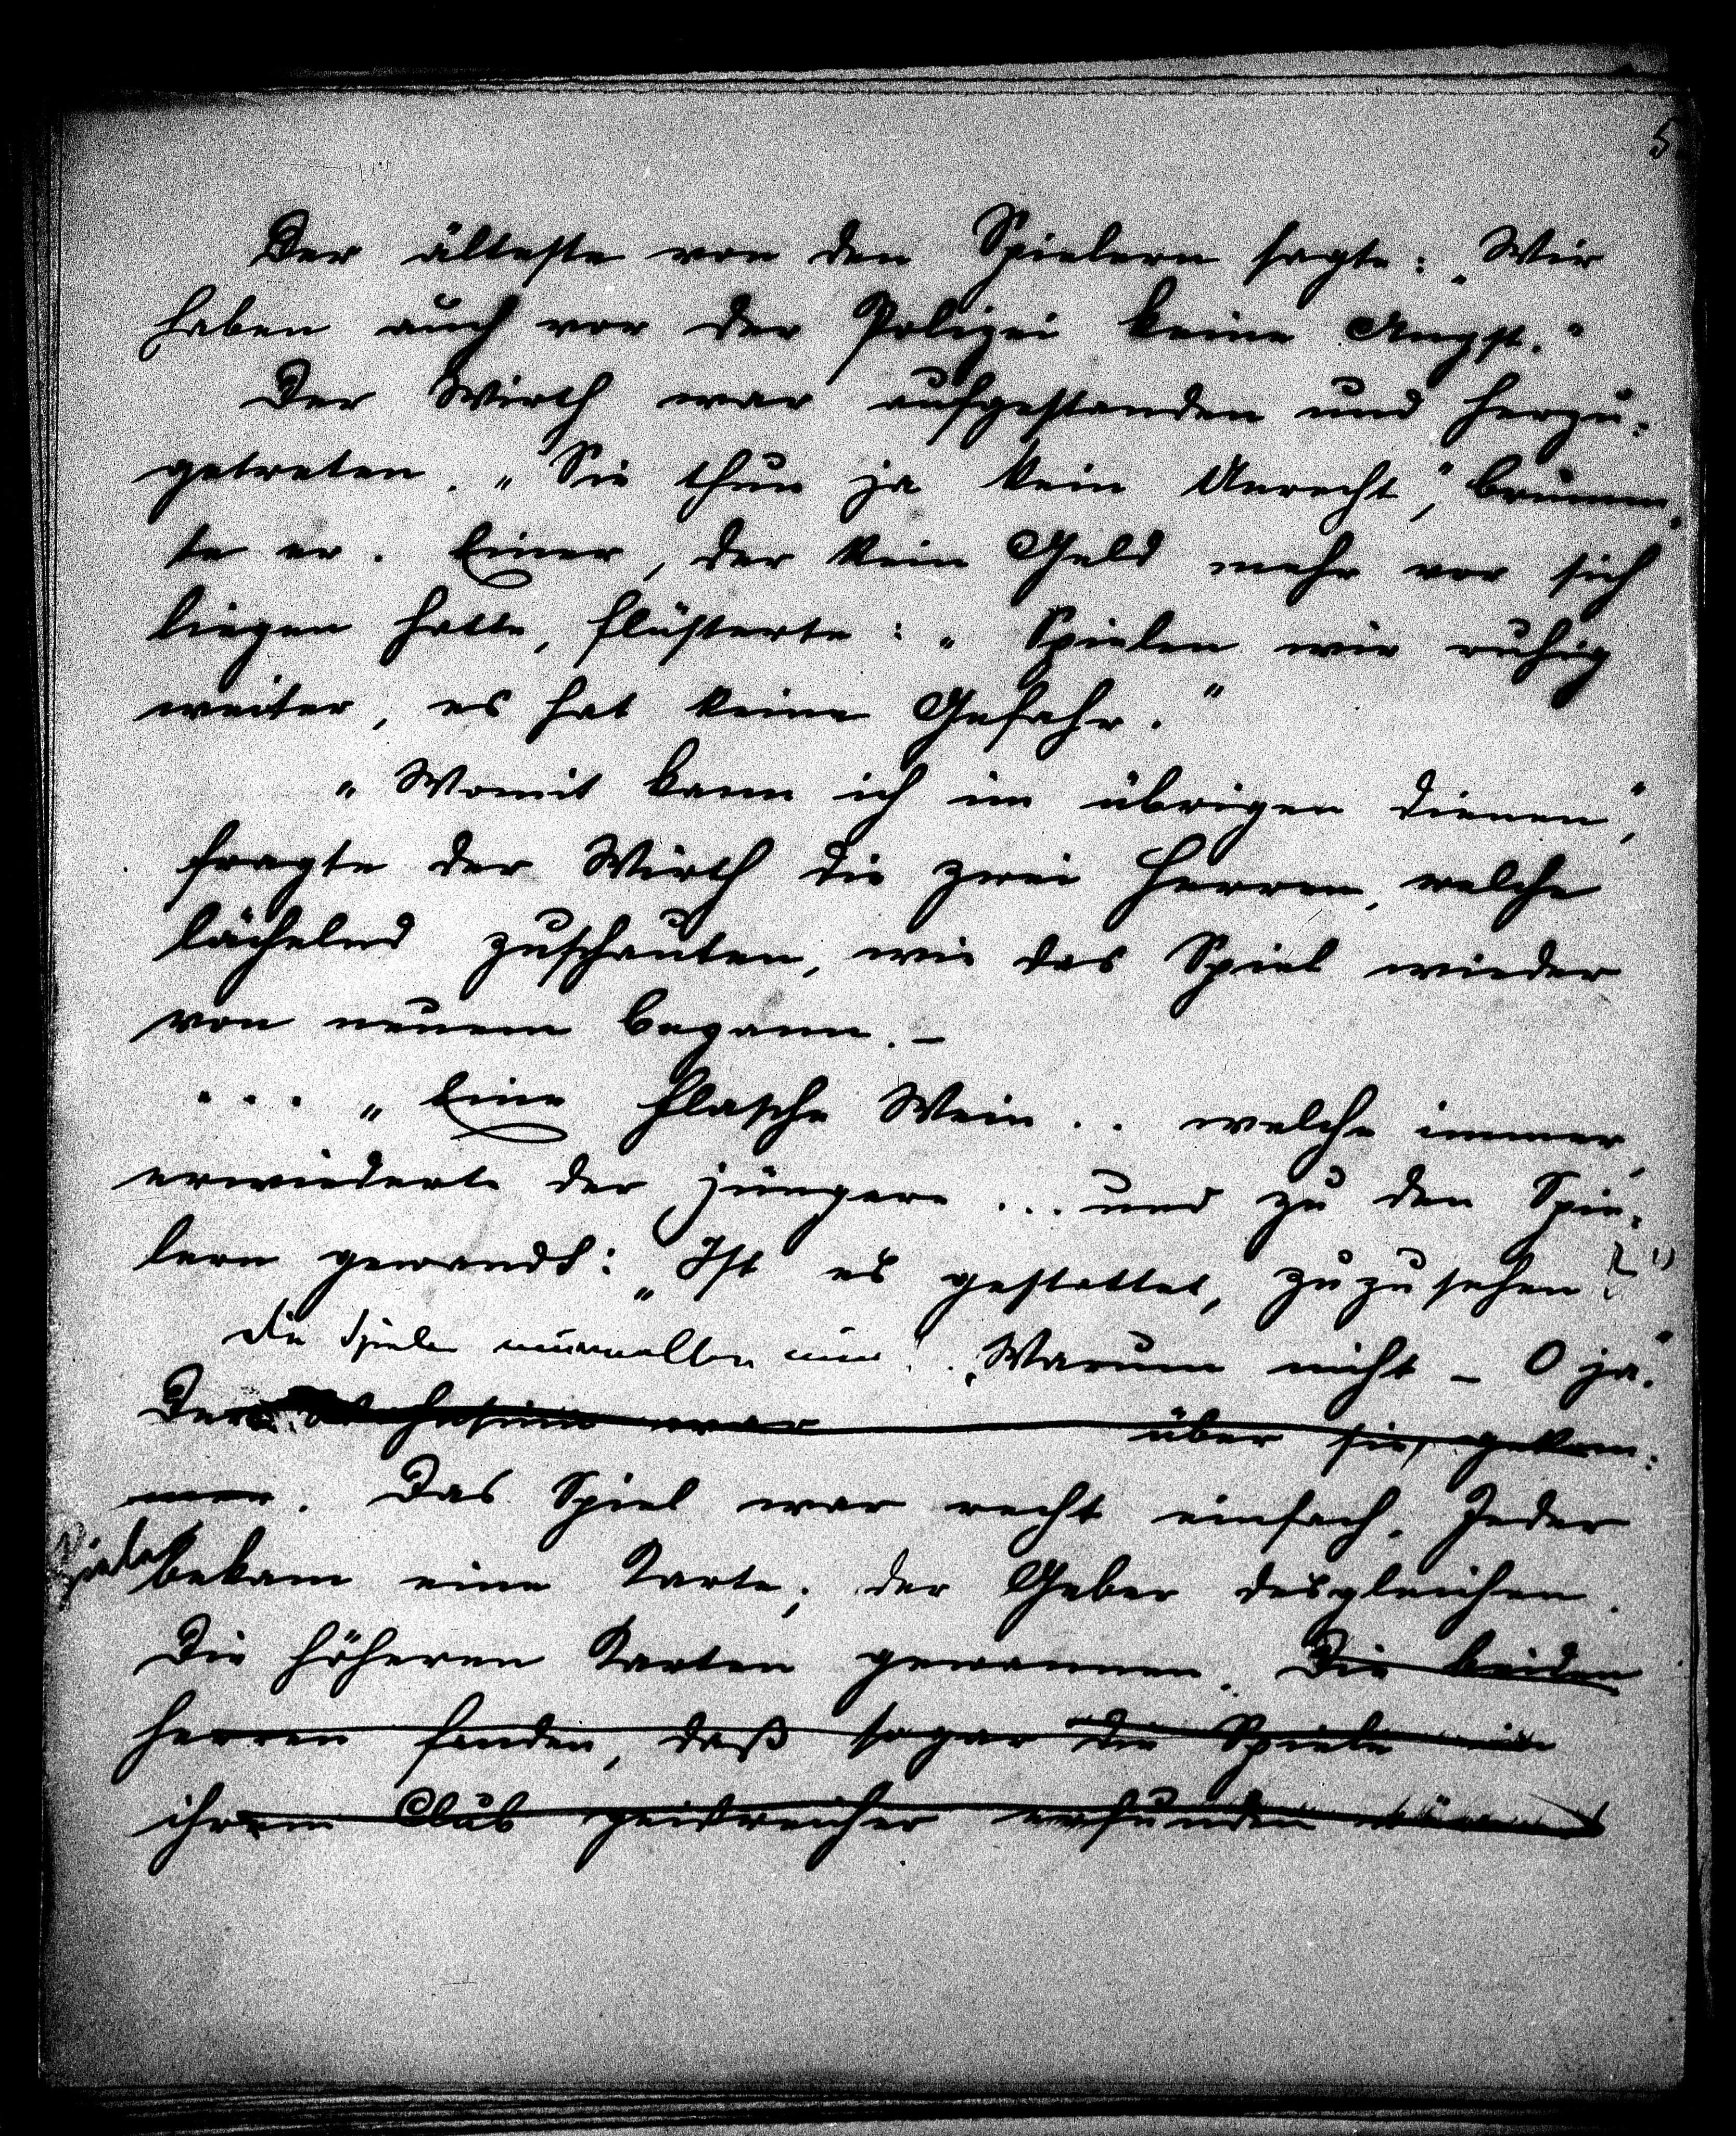 5
Der älteste von den Spielern sagte: „Wir
haben auch vor der Polizei keine Angst.“
Der Wirth war aufgestanden und herzu-
getreten. „Sie thun ja kein Unrecht,“ brumm-
te er. Einer, der kein Geld mehr vor sich
liegen hatte, flüsterte: „Spielen wir ruhig
weiter, es hat keine Gefahr.“
„Womit kann ich im übrigen dienen“,
fragte der Wirth die zwei Herren, welche
lächelnd zuschauten, wie das Spiel wieder
von neuem begann. –
... „Eine Flasche Wein .. welche immer,
erwiederte der jüngere ... und zu den Spie-
lern gewandt: „Ist es gestattet, zuzusehen?“
Die Spieler murmelten nur: „Warum nicht – O ja.“
Der war über sie gekom-
men. Das Spiel war recht einfach. Jeder
bekam eine Karte; der Geber desgleichen.
Die höheren Karten gewannen. Die beiden
Herren fanden, daß sogar die Spiele in
ihrem Club geistreicher erfunden wären